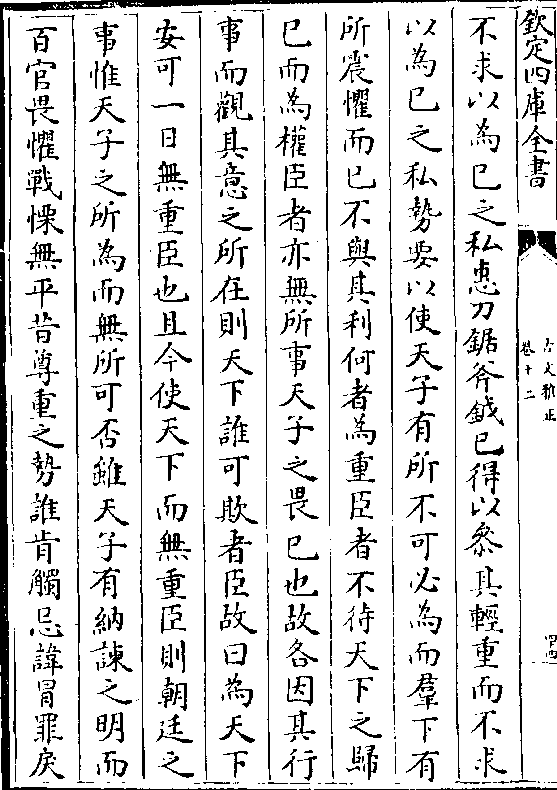 欽定四庫全書
古文雅正
卷十二
四四
不求以為已之私惠刀鋸斧鉞已得以參其輕重而不求
以為已之私勢要以使天子有所不可必為而羣下有
所震懼而已不與其利何者為重臣者不待天下之歸
已而為權臣者亦無所事天子之畏已也故各因其行
事而觀其意之所在則天下誰可欺者臣故曰為天下
安可一日無重臣也且今使天下而無重臣則朝廷之
事惟天子之所為而無所可否雖天子有納諫之明而
百官畏懼戰慄無平昔尊重之勢誰肯觸忌諱冒罪戾